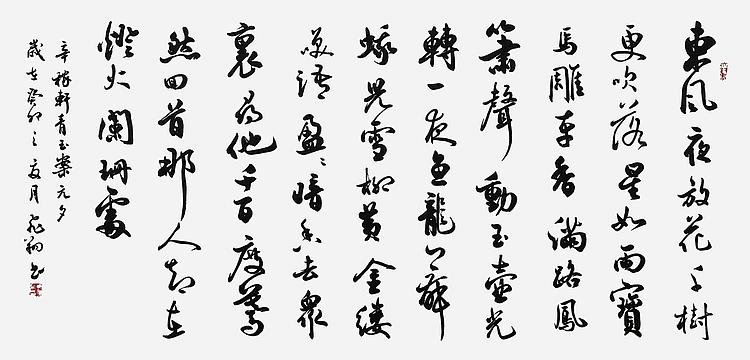 東風夜放花千樹
更吹落星如雨寶
馬雕車香滿路鳳
簫聲動玉壺光
轉一夜魚龍舞
蛾兒雪柳黃金縷
笑語盈盈暗香去眾
裏尋他千百度驀
然回首那人卻在
燈火闌珊處
辛稼軒青玉案元夕
歲在癸卯之夏月飛翔書